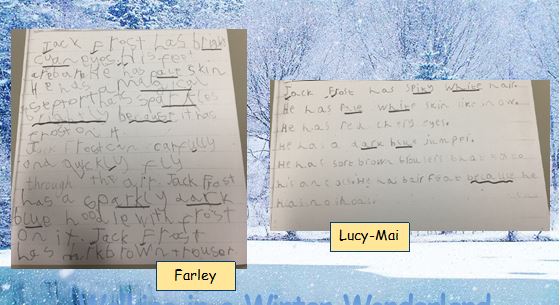 Jack Frost has brown
eyes. His feet
are bare. He has pale skin
He has a magical
sceptor that sparkles
brightly because it has
frost on it.
Jack Frost can carefully
and quickly fly
through the air. Jack Frost
has a sparkly dark
blue hoodie with frost
on it. Jack Frost
has brown trouser
Farley
Jack Frost has spiky white hair.
He has pale white skin like snow.
He has red chery eyes.
He has a dark blue jumper.
He has brown
He has bair feat because he
has no shoes.
Lucy-Mai
Winter Wonderland